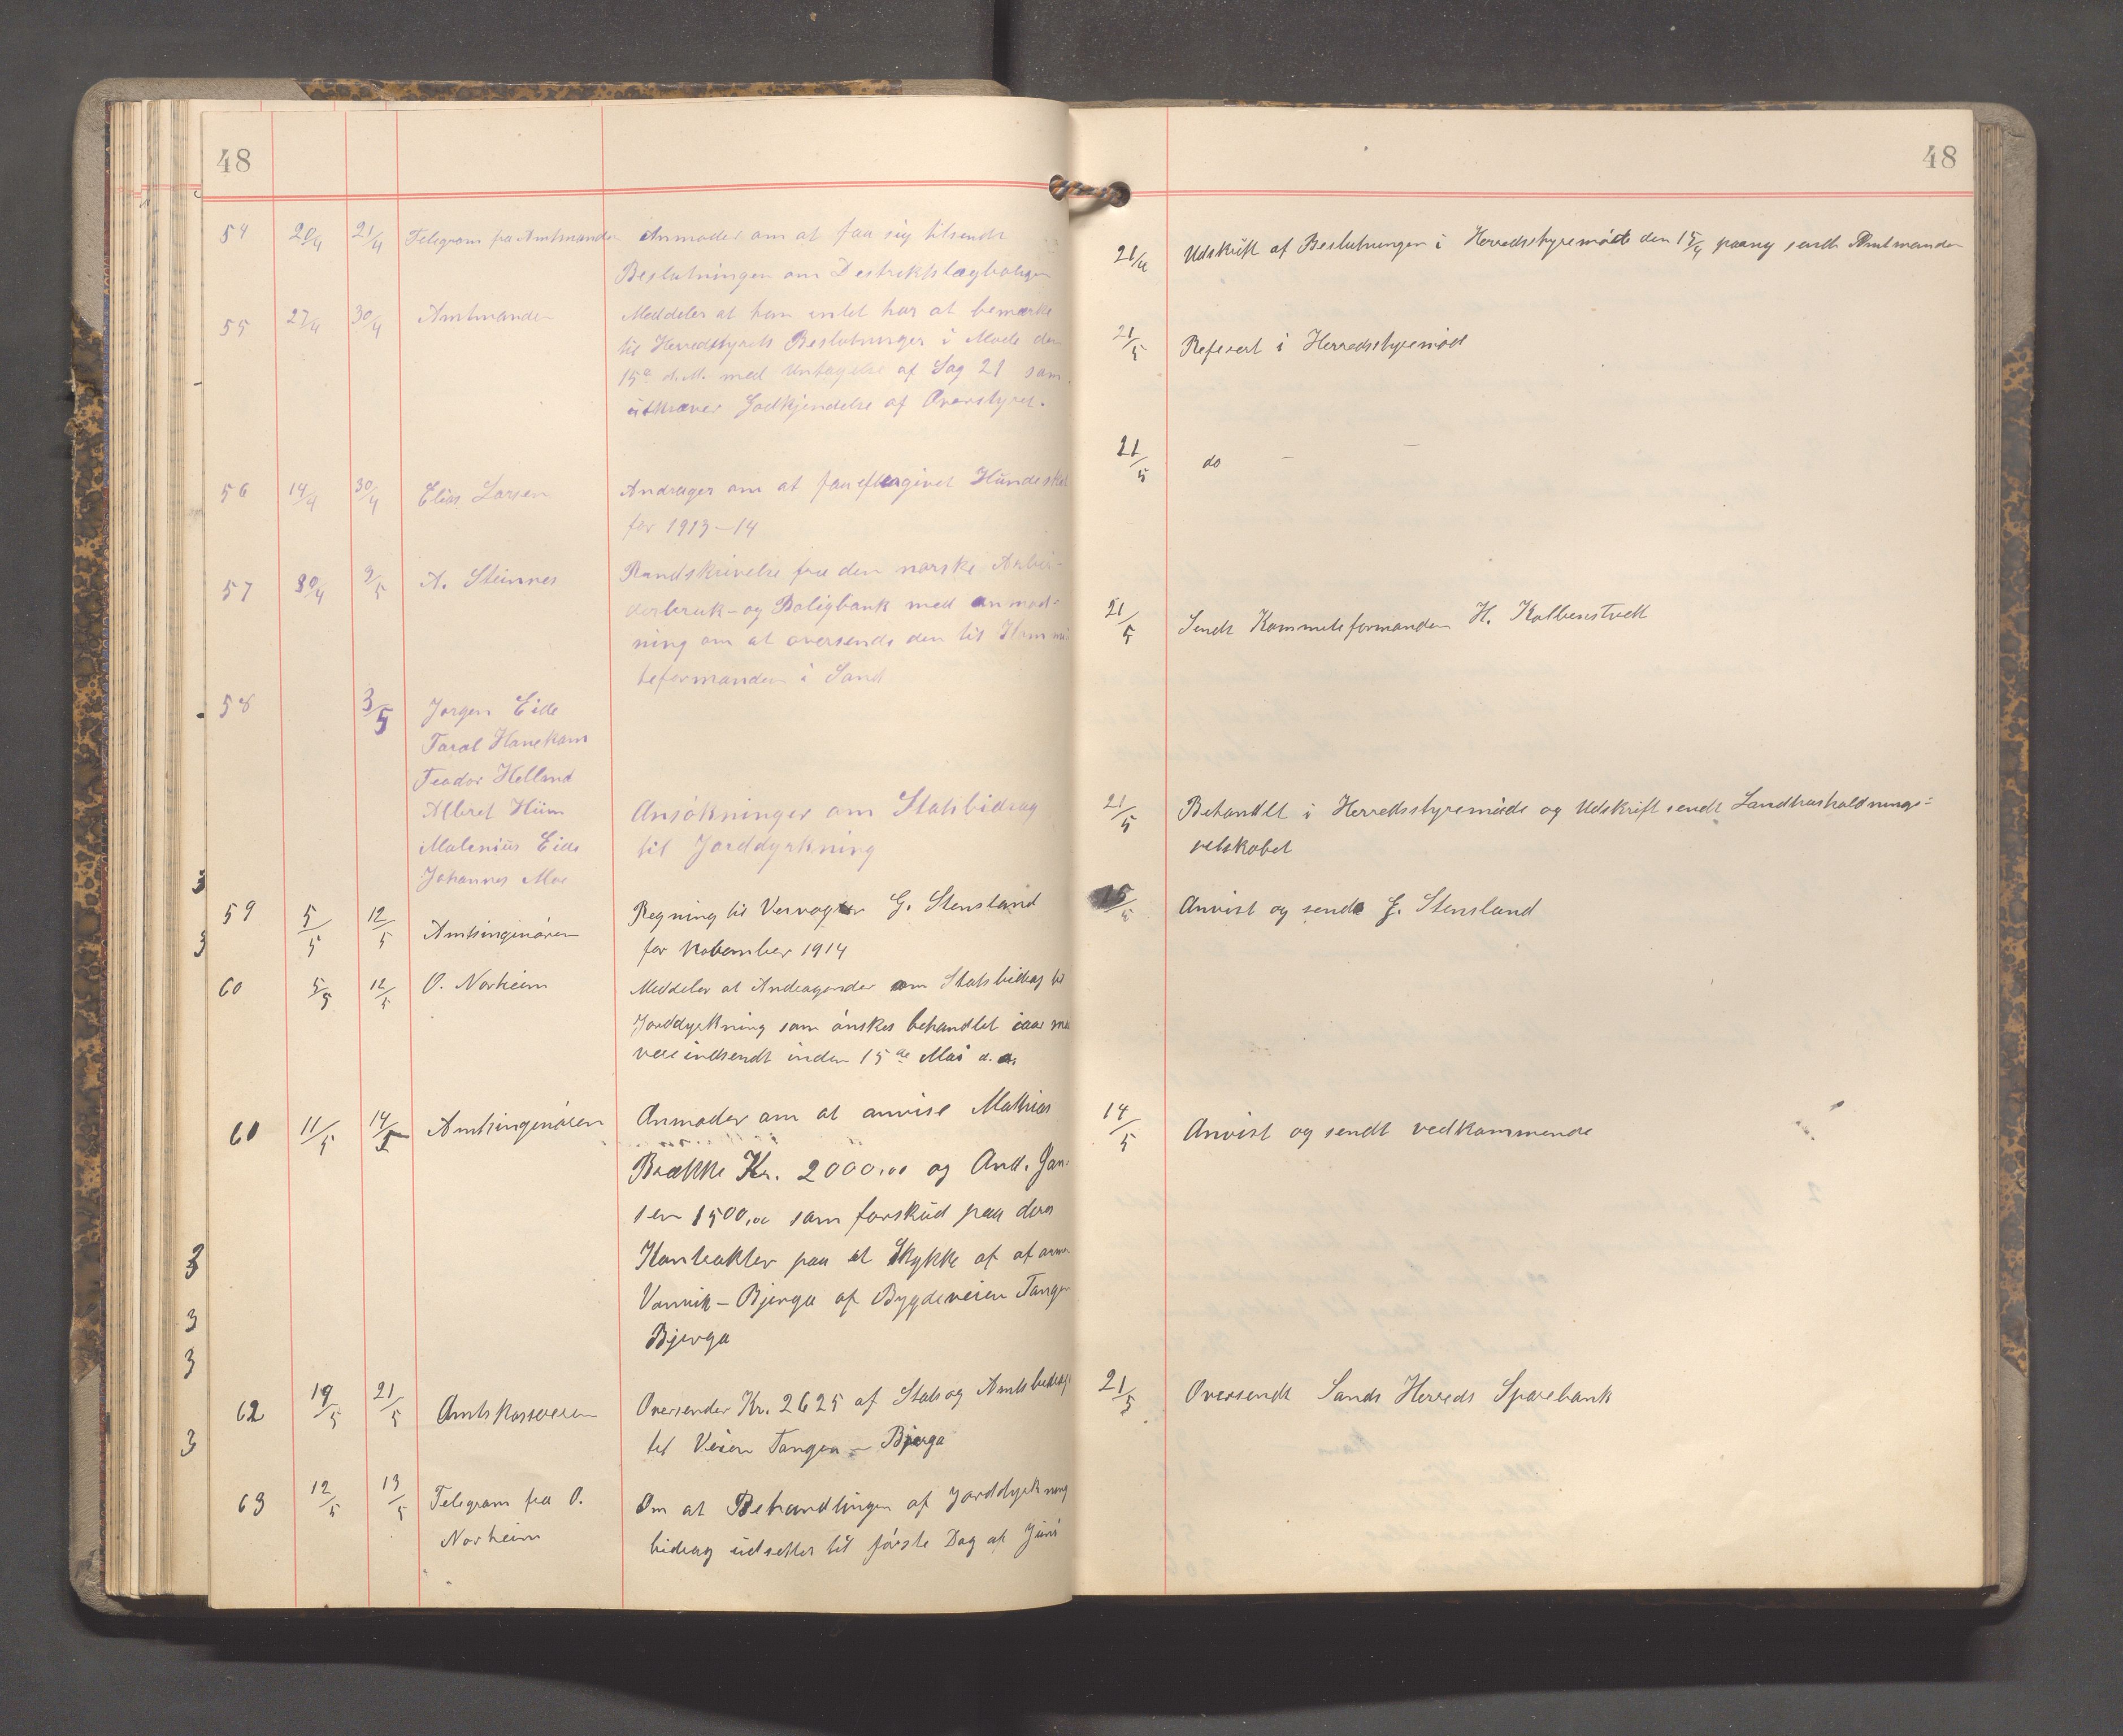 48
54 20/4 21/4 Telegram fra Amtmanden Anmoder om at faa sig tilsendt
Beslutningen om Destriktslægboligen
55 27/4 30/4 Amtmanden Meddeler at han intet har at bemærke
til Herredstyrets Beslutninger i Møde den
15de d.M. med Untagelse af Sag 21 som
utkræver Godkjendelse af Overstyret.
56 14/4 30/4 Elias Larsen Andrager om at faa eftergivet Hundeskat
for 1913-14
57 30/4 2/5 A. Steinnes Randskrivelse fra den norske Arbei-
derbruk- og Boligbank med anmod-
ning om at oversende den til Kommi
teformanden i Sand
58 3/5 Jorgen Eide
Taral Hanekam
Teodor Helland
Albret Hiim
Malenius Eide Ansökninger om Statsbidrag
Johannes Moe til Jorddyrkning
59 5/5 12/5 Amtsingeniøren Regning til Veivogter G. Stensland
for November 1914
60 5/5 12/5 O. Norheim Meddeler at Andragender om Statsbidrag til
Jorddyrkning som önskes behandlet iaar maa
være indsendt inden 15de Mai d.a.
61 11/5 14/5 Amtsingeniøren Anmoder om at anvise Mathias
Brække Kr. 2000,00 og And. Jan-
sen 1500,00 som forskud paa deres
Kontrakter paa et Stykke af
Vanvik - Bjerga af Bygdeveien Tangen
Bjerga
62 19/5 21/5 Amtskassereren Oversender Kr. 2625 af Stats og Amtsbidrag
til Veien Tangen - Bjerga
63 12/5 13/5 Telegram fra O. Om at Behandlingen af Jorddyrkning
Norheim bidrag utsettes til förste Dag af Juni
3
3
3
3
3
3
48
21/4 Udskrift af Beslutningen i Herredsstyremøde den 15/4 paany sendt Amtmanden
21/5 Referert i Herredsstyremøde
21/5 do —
21/5 Sendt Kommiteformanden H. Kolbenstvedt
21/5 Behandlet i Herredsstyremøde og Udskrift sendt Landhusholdnings-
selskabet
15/5 Anvist og sendt G. Stensland
14/5 Anvist og sendt vedkommende
21/5 Oversendt Sands Herreds Sparebank